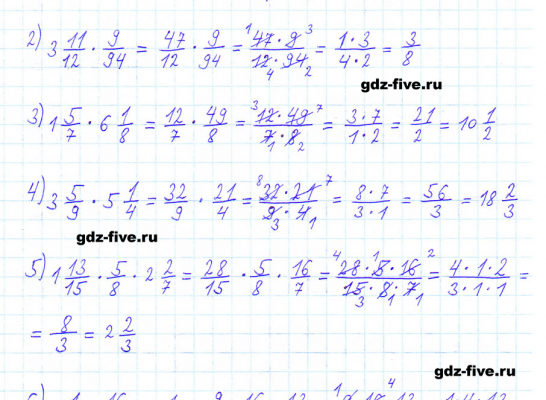 2) 3 11/12 · 9/94 = 47/12 · 9/94 = 47 · 9/12 · 94 = 1 · 3/4 · 2 = 3/8
gdz-five.ru
3) 1 5/7 · 6 1/8 = 12/7 · 49/8 = 12 · 49/7 · 8 = 3 · 7/1 · 2 = 21/2 = 10 1/2
4) 3 5/9 · 5 1/4 = 32/9 · 21/4 = 32 · 21/9 · 4 = 8 · 7/3 · 1 = 56/3 = 18 2/3
gdz-five.ru
5) 1 13/15 · 5/8 · 2 2/7 = 28/15 · 5/8 · 16/7 = 28 · 5 · 16/15 · 8 · 7 = 4 · 1 · 2/3 · 1 · 1 =
= 8/3 = 2 2/3
gdz-five.ru